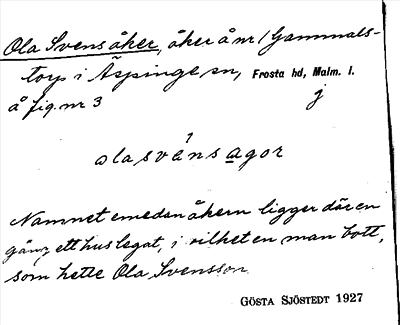 Ola Svens åker, åker å nr 1 Gammals-
torp i Äspinge sn, Frosta hd, Malm. l.
å fig. nr 3 j
olasvens agor
Namnet emedan åkern ligger där en
gång ett hus legat, i vilket en man bott,
som hette Ola Svensson.
GÖSTA SJÖSTEDT 1927